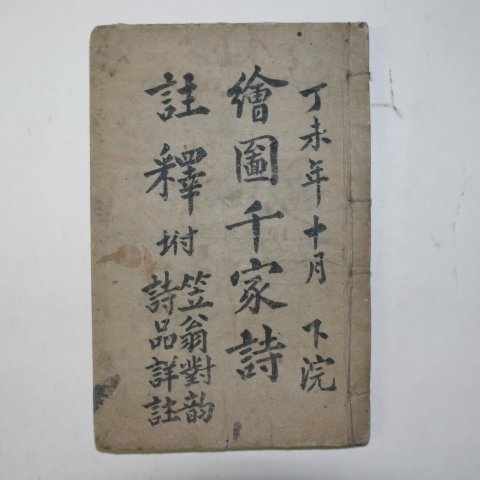 丁未年十月 下浣
繪圖千家詩
註釋坿
笠翁對韵
詩品詳註